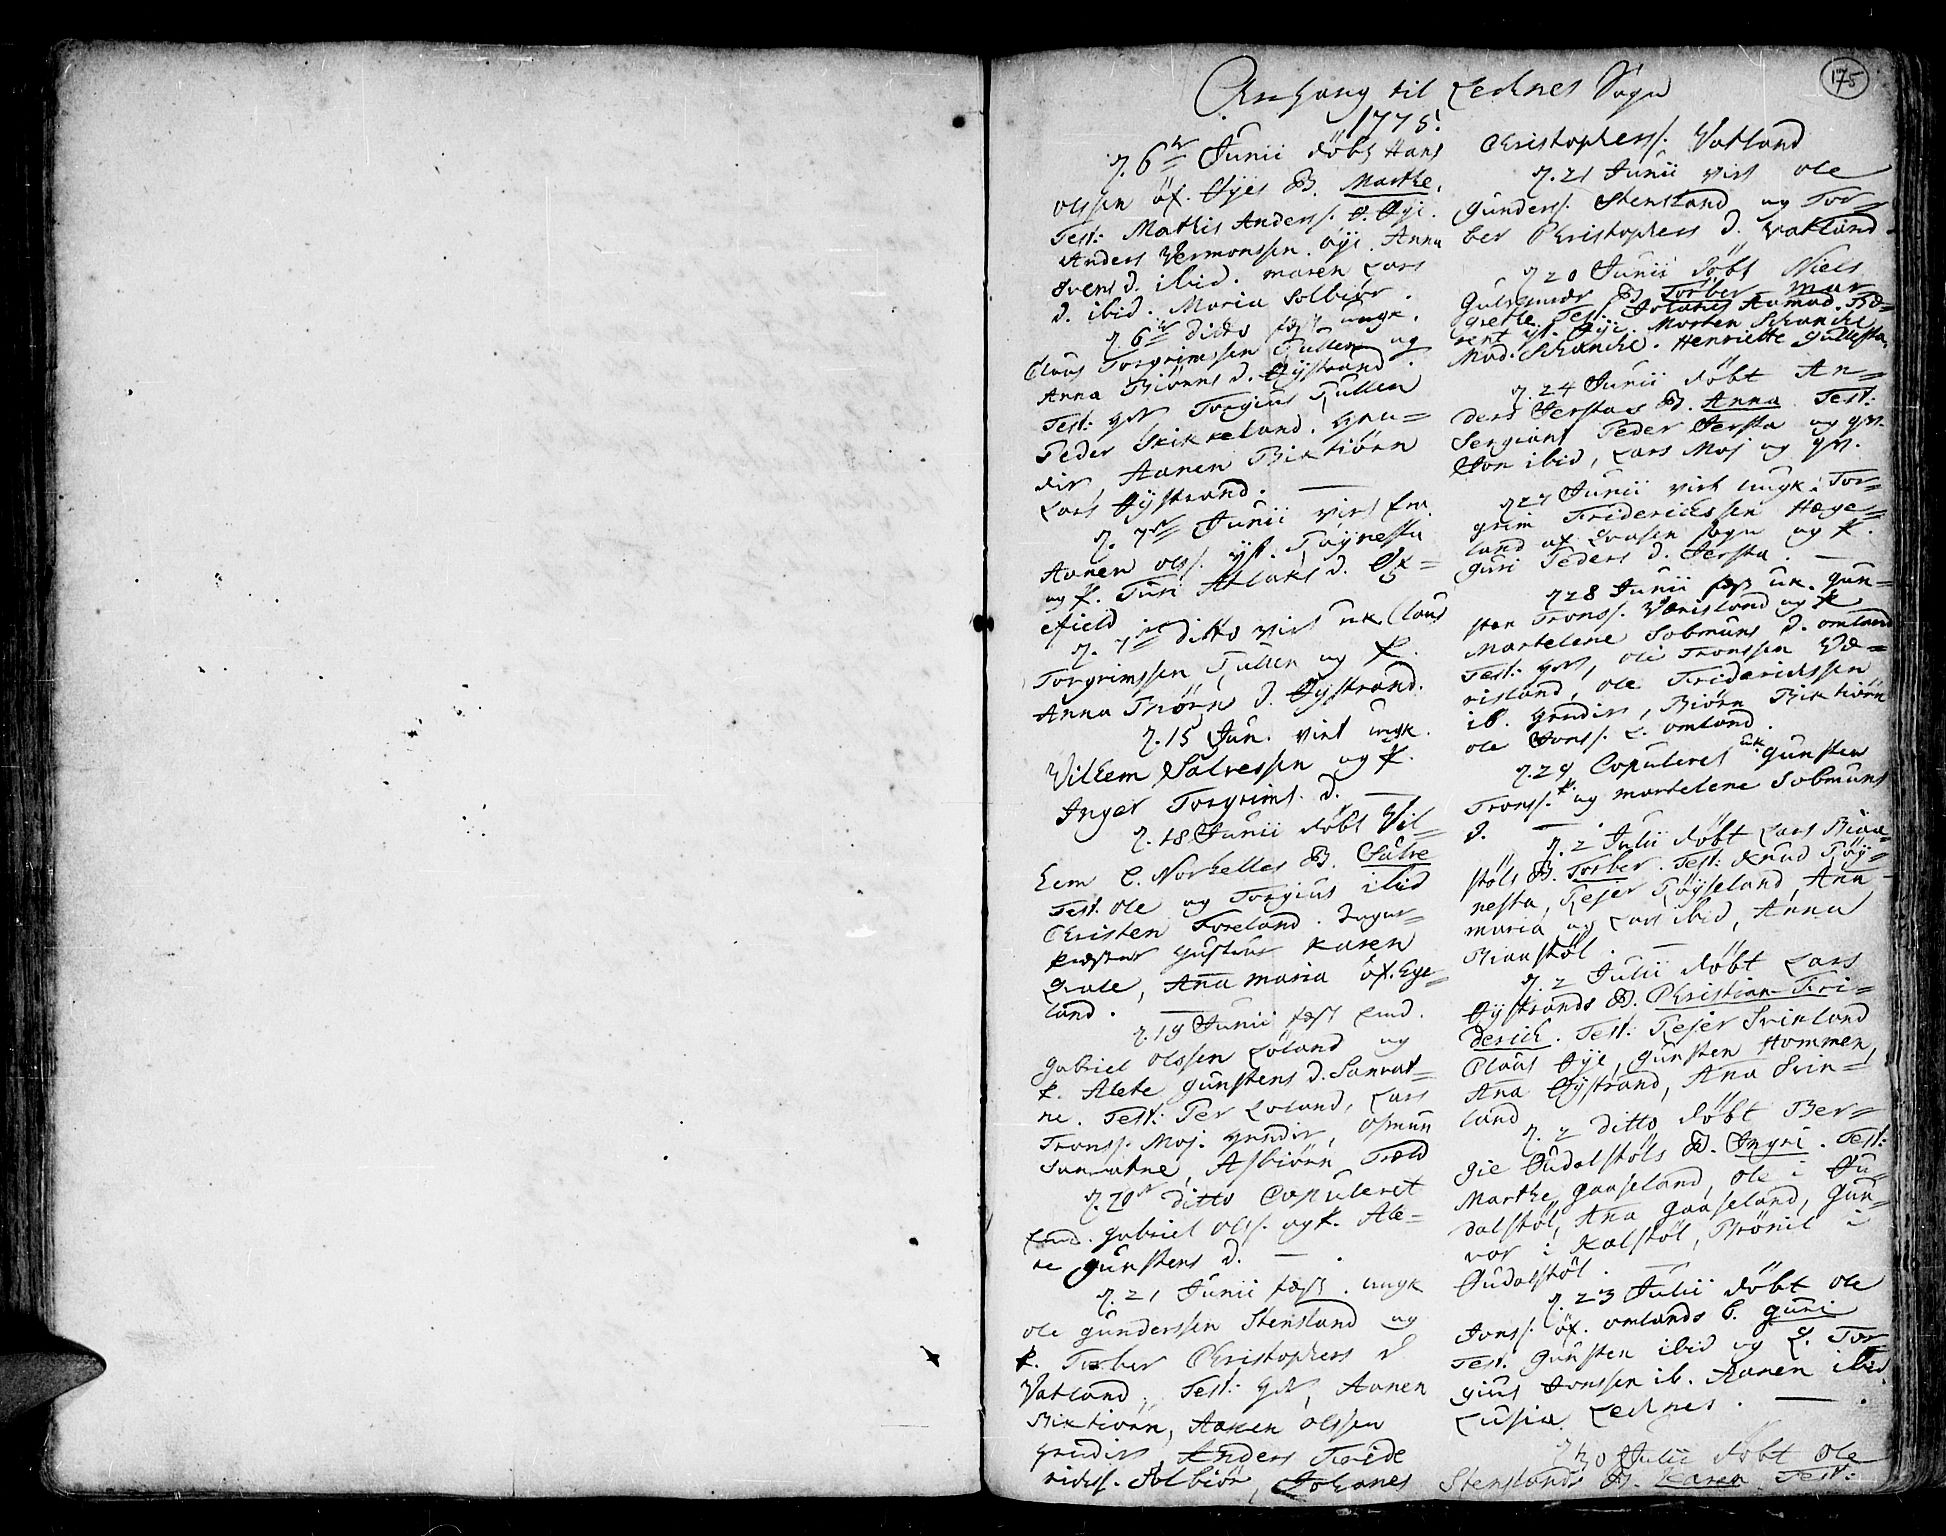 175
Anhang til Lechnes Sogn
1775.
d. 6te Junii döbt Hans
Olssen öf. Øyes B. Marthe.
Test: Mathis Anderss. ø. Øye.
Anders Vermonssen. öye. Anna
Svens d. ibid. maren Lars
d. ibid. Maria Solbiør.
d. 6te ditto fæst ungk.
Claus Torgrimssen Tullen og
Anna Biörns d. Øystrand.
Test: Torgius Tullen
Peder Skikkeland.
dir, Aanen Birkiörn
Lars Øystrand.
d. 7de Junii viet
Aanen Olss. yst. Röynesta
og p. Turi Atlaks d.
efield
d. 7de ditto viet uk. Claus
Torgrimssen Tullen og p.
Anna Biörn d. Øystrand.
d. 15 Jun. viet ungk.
Vilhem Salvessen og p.
Inger Torgrims. d.
d. 18 Junii döbt Vil-
hem C. Norhelles B. Salve
Test. Ole og Torgius ibid
Christen Foreland. Inger
Gustens Karen
Qvale, Ana Maria öf. Ege-
land.
d. 19 Junii fæst Emd.
Gabriel Olssen Loland og
p. Alete Gunstens d. Sanvat-
ne. Test: Per Loland, Lars
Tronss. Moj. Osmun
Sanvatne, Asbiörn Træld
d. 20de ditto Copuleret
Emd. Gabriel Olss. og p. Ale-
te Gunstens d.
d. 21 Junii fæst. ungk
Ole Gunderssen Stensland og
p. Torber Christophers d
Vatland. Test: Aanen
Birkiörn, Aanen Olssen
Anders Fride
rickss. Solbiör, Johanes
Christopherss. Vatland
d. 21 Junii viet Ole
Gunderss. Stensland og Tor-
ber Christophers d. Vatland.
d. 20 Junii döbt Niels
B. Torber Mar
grethe. Test: Johanes Aamod.
rent yt. Øye. Morten Schanche
Mad. Schanche. Henriette Gullesta.
d. 24 Junii döbt An-
ders Jerstaes B. Anna. Test:
Sergiant Peder Jersta og qv.
Jon ibid, Lars Moj og qv.
d. 27 Junii viet ungk. Tor-
grim Friderickssen Hæge-
land af Evasen Sogn og p.
Guri Peders d. Jersta.
d. 28 Junii fæst uk. Gun-
sten Tronss. Værisland og p
Martelene Sobmuns d. omland
Test: Ole Tronssen Væ-
risland, Ole Friderickssen
ib. Biörn Birkiörn
Ole Jonss. L. omland.
d. 29 Copuleret uk. Gunsten
Tronss. og p. martelene Sobmuns
d.
d. 2 Julii döbt Lars Biaa-
stöls B. Torber. Test: Knud Röy-
nesta, Rejer Röyseland, Ana
maria og Lars ibid, Anna
Biaastöl.
d. 2 Julii döbt Lars
Øystrands B. Christian Fri-
derich. Test: Rejer Svinland
Claus Øye, Gunsten Hommen,
Ana Øystrand, Ana Svin-
land
d. 2 ditto döbt Ber-
gie Gudalstöls B. Ingri. Test:
Marthe Gaaseland, Ole i Gu-
dalstöl, Ana Gaaseland, Gun-
vor i Kalstöl, Brönil i
Gudalstöl.
d. 23 Julii döbt Ole
Jonss. öf. omlands B. Guri
Test. Gunsten ibid og L. Tor
gius Jonssen ib. Aanen ibid.
Lusia Lechnes.
d. 30 Julii döbt Ole
Stenslands B. Karen Test: